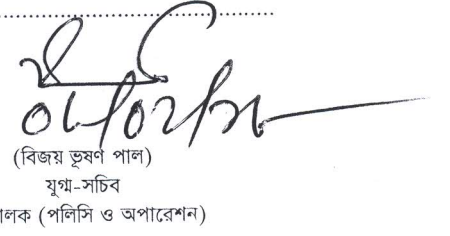 (বিজয় ভূষণ পাল)
যুগ্ম-সচিব
(পলিসি ও অপারেশন)